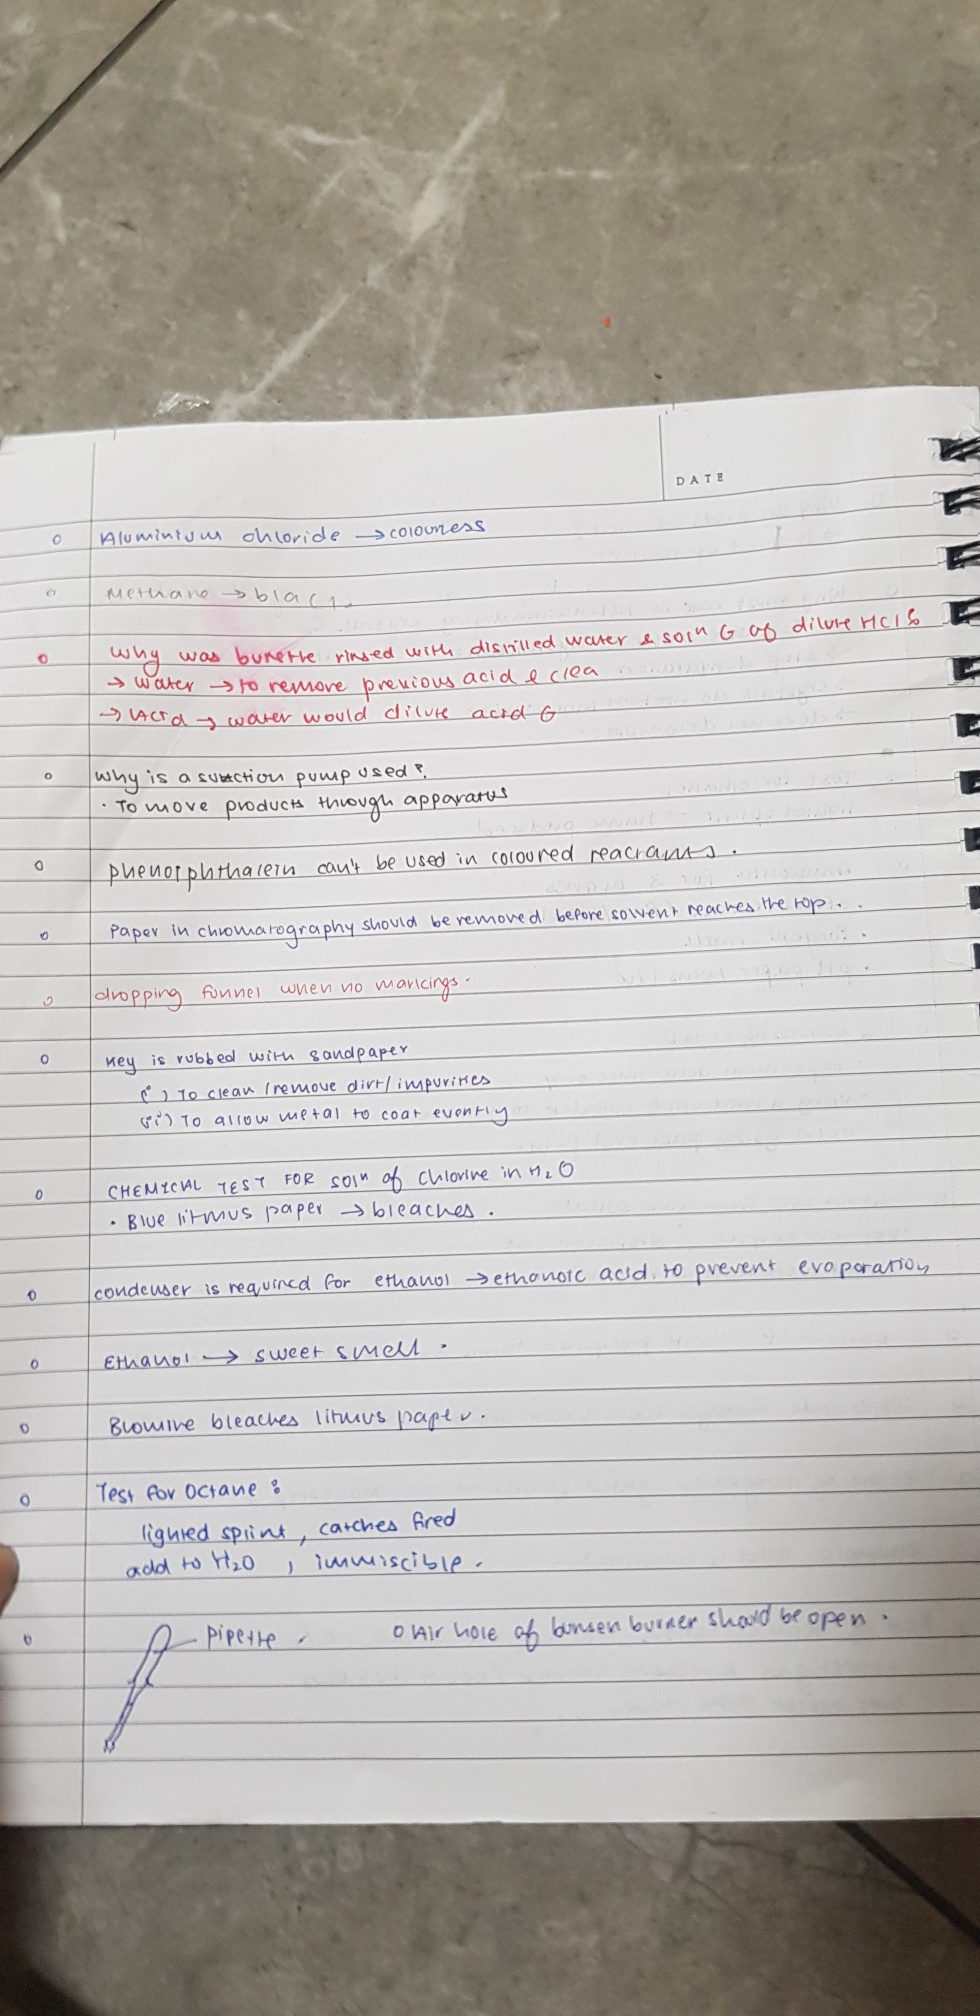 DATE
Aluminium chloride → colourless
Methane → black.
Why was burette rinsed with distilled water & soln G of dilute HCl?
→ Water → to remove previous acid & clea
→ Acid → water would dilute acid G
Why is a suction pump used?
· To move products through apparatus
Phenolphthalein can't be used in coloured reactants.
Paper in chromatography should be removed before solvent reaches the top.
dropping funnel when no markings.
Key is rubbed with sandpaper
(i) To clean / remove dirt / impurities
(ii) To allow metal to coat evenly
CHEMICAL TEST FOR soln of chlorine in H₂O
· Blue litmus paper → bleaches.
condenser is required for ethanol → ethanoic acid to prevent evaporation
Ethanol → sweet smell.
Bromine bleaches litmus paper.
Test for Octane:
lighted splint, catches fired
add to H₂O, immiscible.
Pipette. o Air hole of bunsen burner should be open.